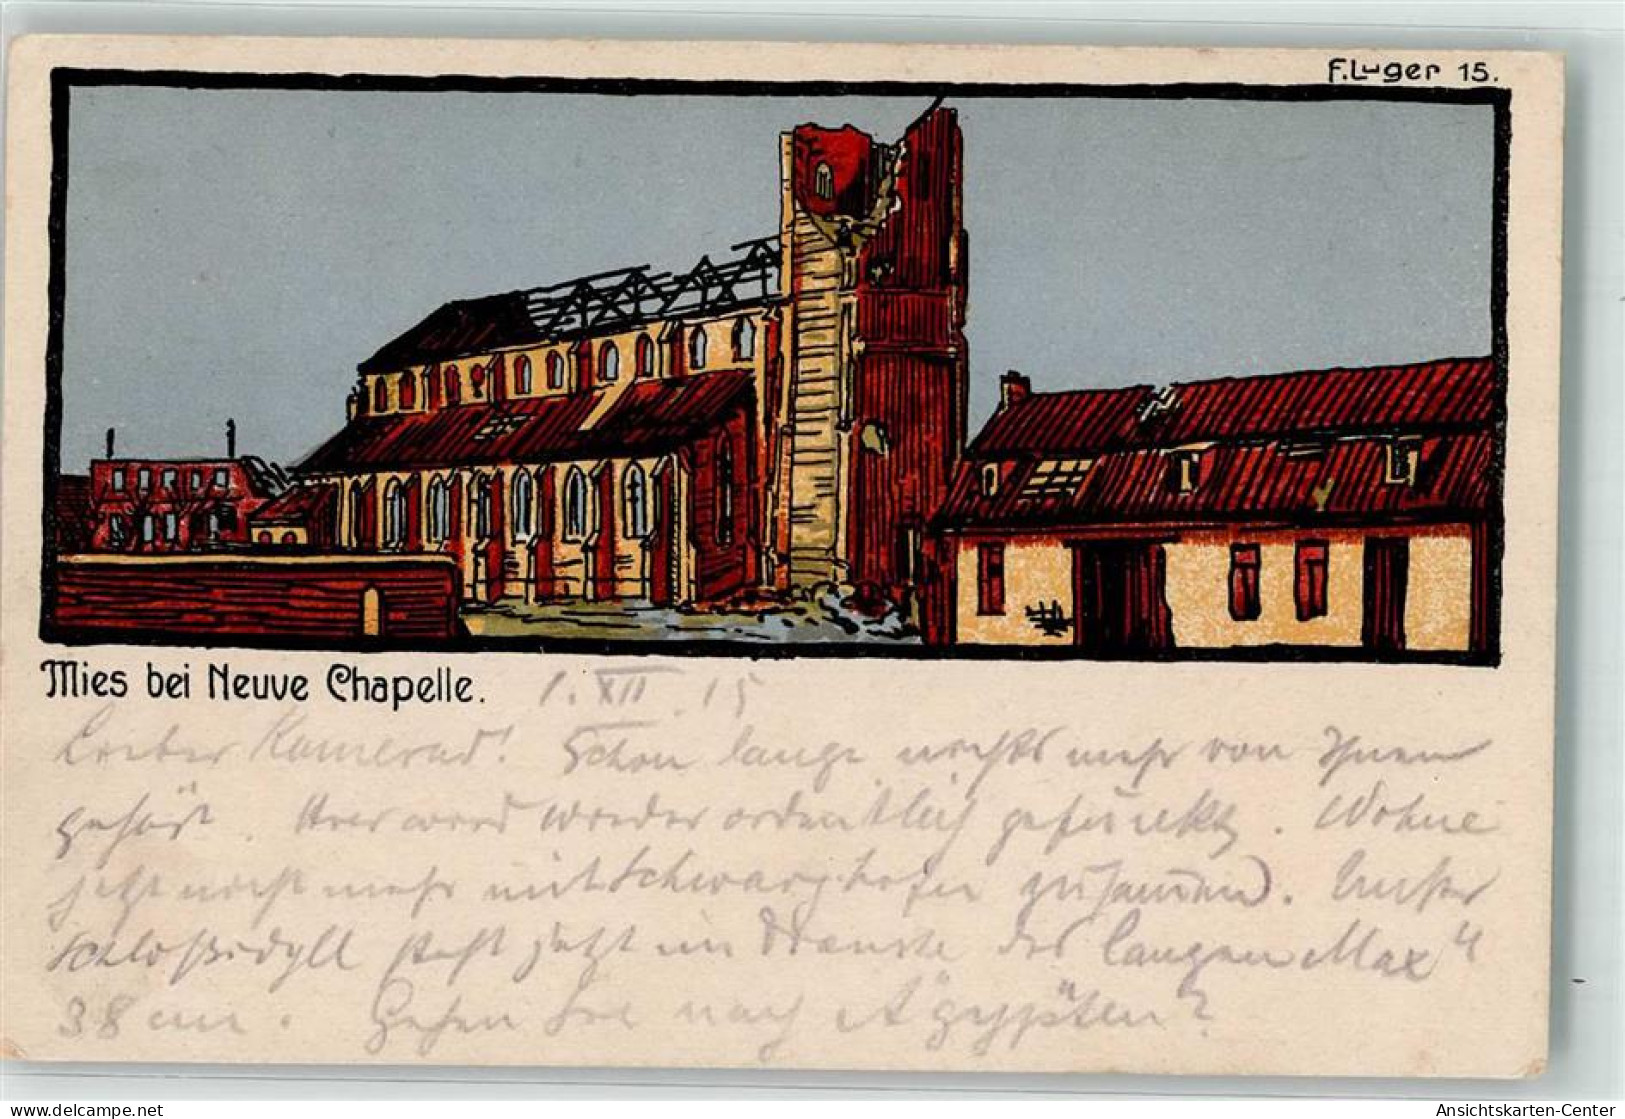 F. Luger 15.
Mies bei Neuve Chapelle. 1. XII. 15
Lieber Kamerad! Schon lange nichts mehr von Ihnen
gehört. Hier wird wieder ordentlich gefunkt. Wohne
jetzt nicht mehr mit Schwarzkofer zusammen. Unser
Schloßidyll steht jetzt im Dienste des langen Max"
38 cm. Gehen Sie nach Ägypten?
www.ansichtskarten-center.de
Ansichtskarten-Center